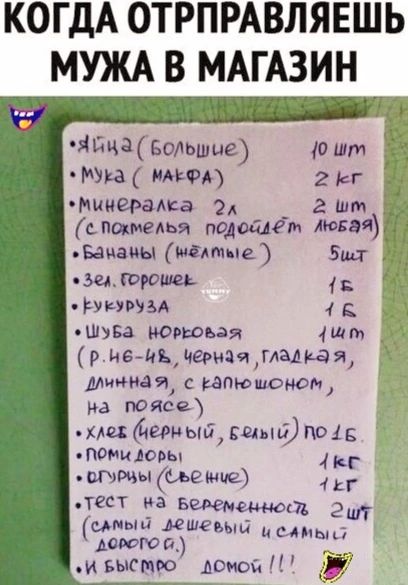 КОГДА ОТРПРАВЛЯЕШЬ
МУЖА В МАГАЗИН
• Яйца (Большие) 10 шт
• Мука ( МАКФА) 2 кг
• Минералка 2л 2 шт
(с похмелья подойдёт любая)
• Бананы (жёлтые) 5шт
• Зел. горошек 1 Б
• Кукуруза 1 Б
• Шуба норковая 1 шт
(р.46-48, чёрная, гладкая,
длинная, с капюшоном,
на поясе)
• хлеб (чёрный, белый) по 1Б.
• помидоры 1 кг
• огурцы (свежие) 1 кг
• тест на беременность 2 шт
(самый дешевый и самый
дорогой.)
• И быстро домой !!!